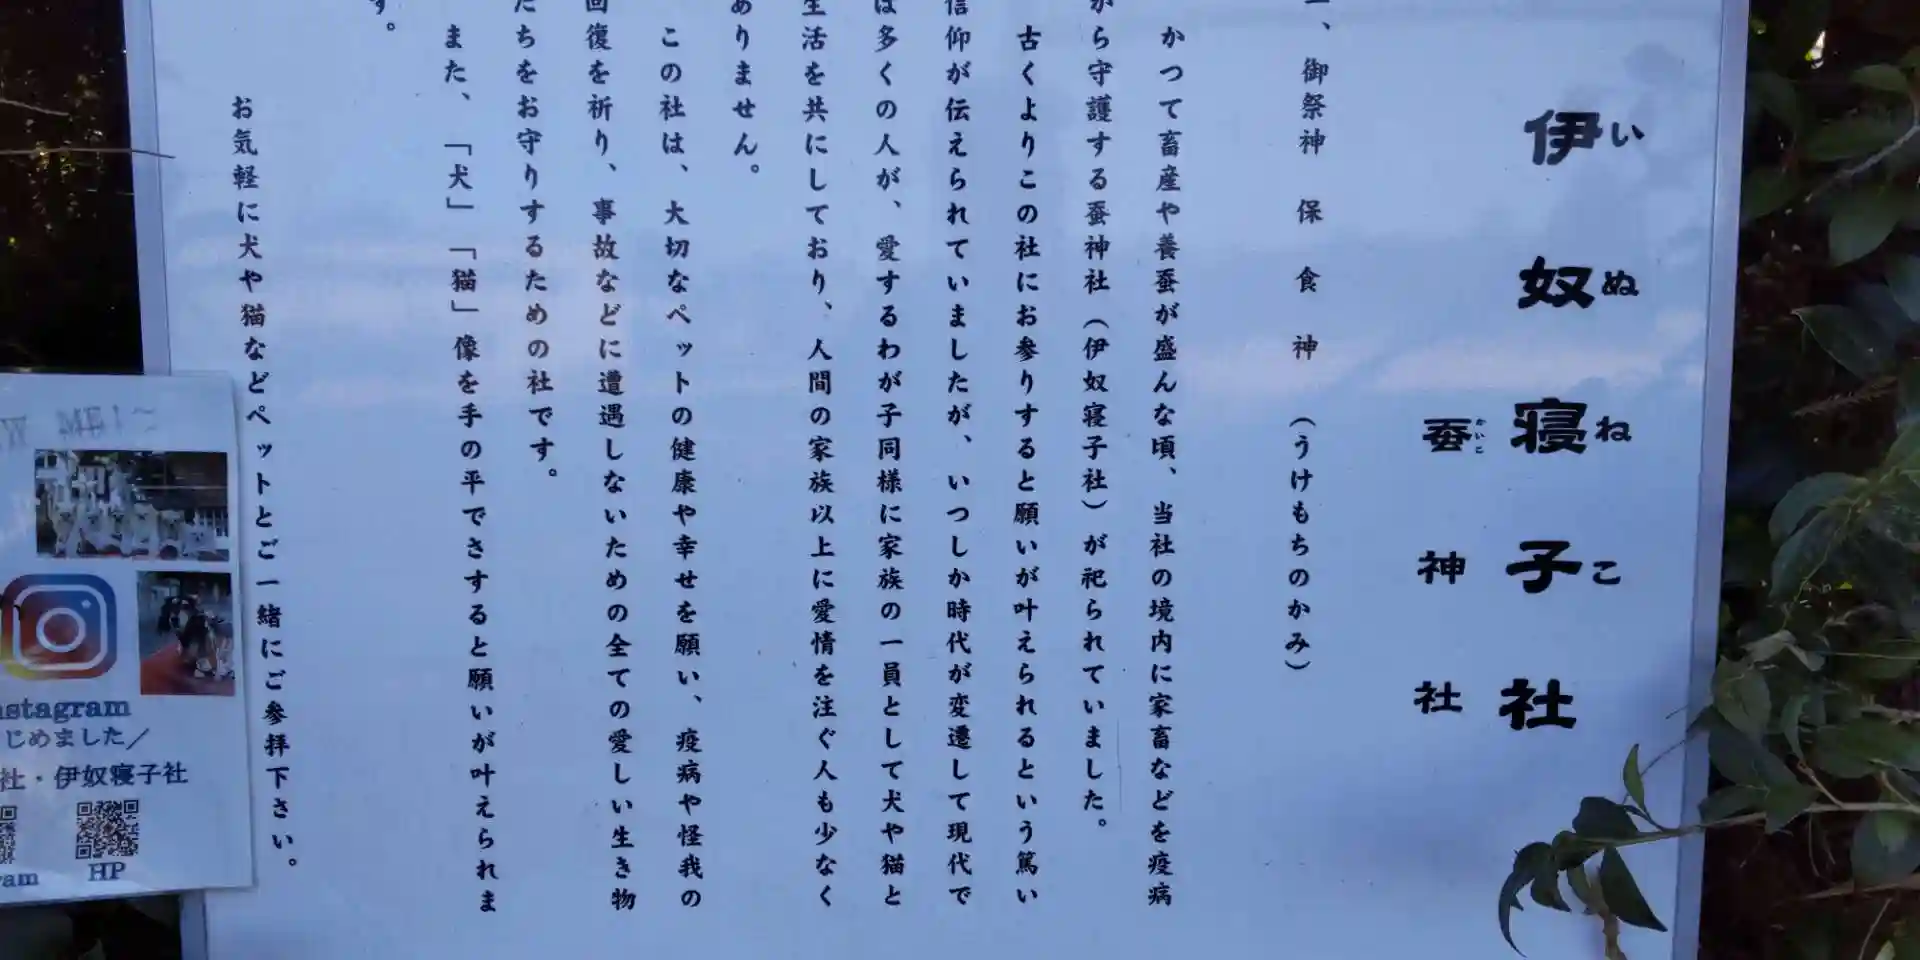 伊奴寝子社
いぬねこ
蚕神社
かいこ
一、御祭神 保食神 (うけもちのかみ)
かつて畜産や養蚕が盛んな頃、当社の境内に家畜などを疫病
から守護する蚕神社(伊奴寝子社)が祀られていました。
古くよりこの社にお参りすると願いが叶えられるという篤い
信仰が伝えられていましたが、いつしか時代が変遷して現代で
は多くの人が、愛するわが子同様に家族の一員として犬や猫と
生活を共にしており、人間の家族以上に愛情を注ぐ人も少なく
ありません。
この社は、大切なペットの健康や幸せを願い、疫病や怪我の
回復を祈り、事故などに遭遇しないための全ての愛しい生き物
たちをお守りするための社です。
また、「犬」「猫」像を手の平でさすると願いが叶えられま
す。
お気軽に犬や猫などペットとご一緒にご参拝下さい。
nstagram
じめました/
社・伊奴寝子社
ram
HP